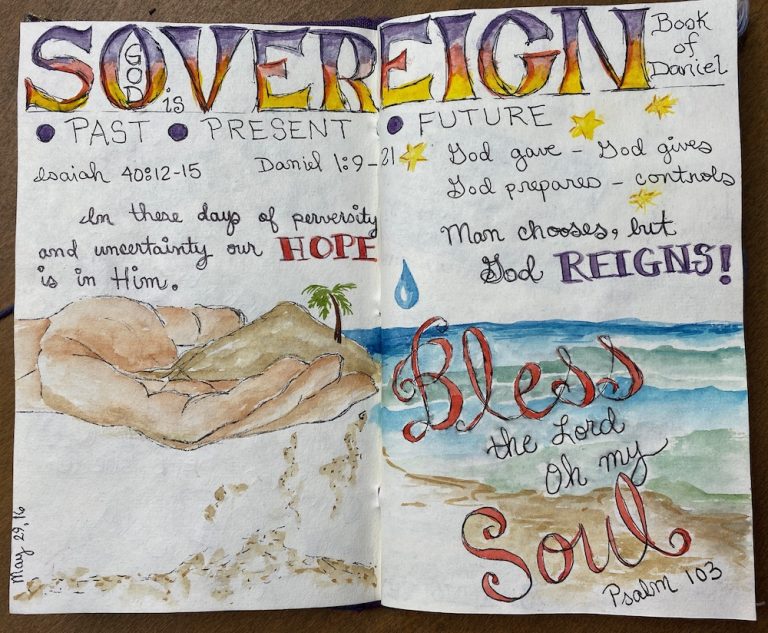 GOD is SOVEREIGN
Book
of
Daniel
• PAST • PRESENT • FUTURE
Isaiah 40:12-15 Daniel 1:9-21
In these days of perversity
and uncertainty our HOPE
is in Him.
God gave - God gives
God prepares - controls
Man chooses, but
God REIGNS!
Bless
the Lord
Oh my
Soul
Psalm 103
May 29, 16